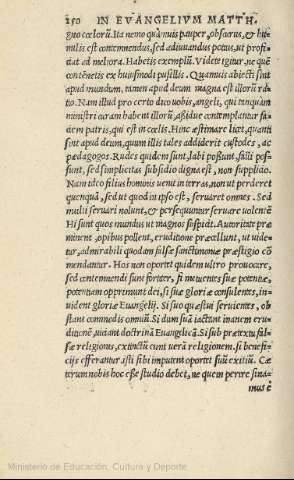 250 IN EVANGELIVM MATTH.
gno cœlorũ. Ita nemo quãuis pauper, obscurus, & hu
milis est contemnendus, sed adiuuandus potius, ut profi
ciat ad meliora. Habetis exemplũ. Videte igitur, ne quẽ
contẽnetis ex huiusmodi pusillis. Quamuis abiecti sunt
apud mundum, tamen apud deum magna est illorũ ra
tio. Nam illud pro certo dico uobis, angeli, qui tanquam
ministri curam habent illorũ, aßidue contemplantur fa
ciem patris, qui est in cœlis. Hinc æstimare licet, quanti
sunt apud deum, quum illis tales addiderit custodes, ac
pædagogos. Rudes quidem sunt, labi poßunt, falli pos-
sunt, sed simplicitas subsidio digna est, non supplicio.
Nam ideo filius hominis uenit in terras, non ut perderet
quenquã, sed ut quod in ipso est, seruaret omnes. Sed
mulii seruari nolunt, & persequuntur seruare uolentẽ
Hi sunt quos mundus ut magnos suspicit. Autoritate præ
minent, opibus pollent, eruditione præcellunt, ut uide-
tur, admirabili quodam falsæ sanctimoniæ præstigio cõ
mendantur. Hos non oportet quidem ultro prouocare,
sed contemnendi sunt fortiter, si metuentes suæ potentiæ,
potentiam opprimunt dei, si suæ gloriæ consulentes, in-
uident gloriæ Euangelij. Si suo quæstui seruientes, ob
stant commodis omniũ. Si dum suã iactant inanem eru-
ditionẽ, uiciant doctrinã Euangelicã. Si sub prætextu fal-
sæ religionis, extinctũ eunt uerã religionem. Si benefi-
cijs efferantur isti sibi imputent oportet suũ exitiũ. Cæ
terum nobis hoc esse studio debet, ne quem perire sina-
mus è
Ministerio de Educación, Cultura y Deporte